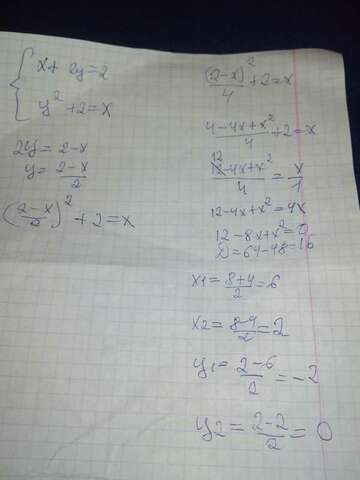 x + 2y = 2
y² + 2 = x
2y = 2 - x
y = (2 - x)/2
((2 - x)/2)² + 2 = x
(2 - x)²/4 + 2 = x
(4 - 4x + x²)/4 + 2 = x
(12 - 4x + x²)/4 = x/1
12 - 4x + x² = 4x
12 - 8x + x² = 0
D = 64 - 48 = 16
x1 = (8 + 4)/2 = 6
x2 = (8 - 4)/2 = 2
y1 = (2 - 6)/2 = -2
y2 = (2 - 2)/2 = 0